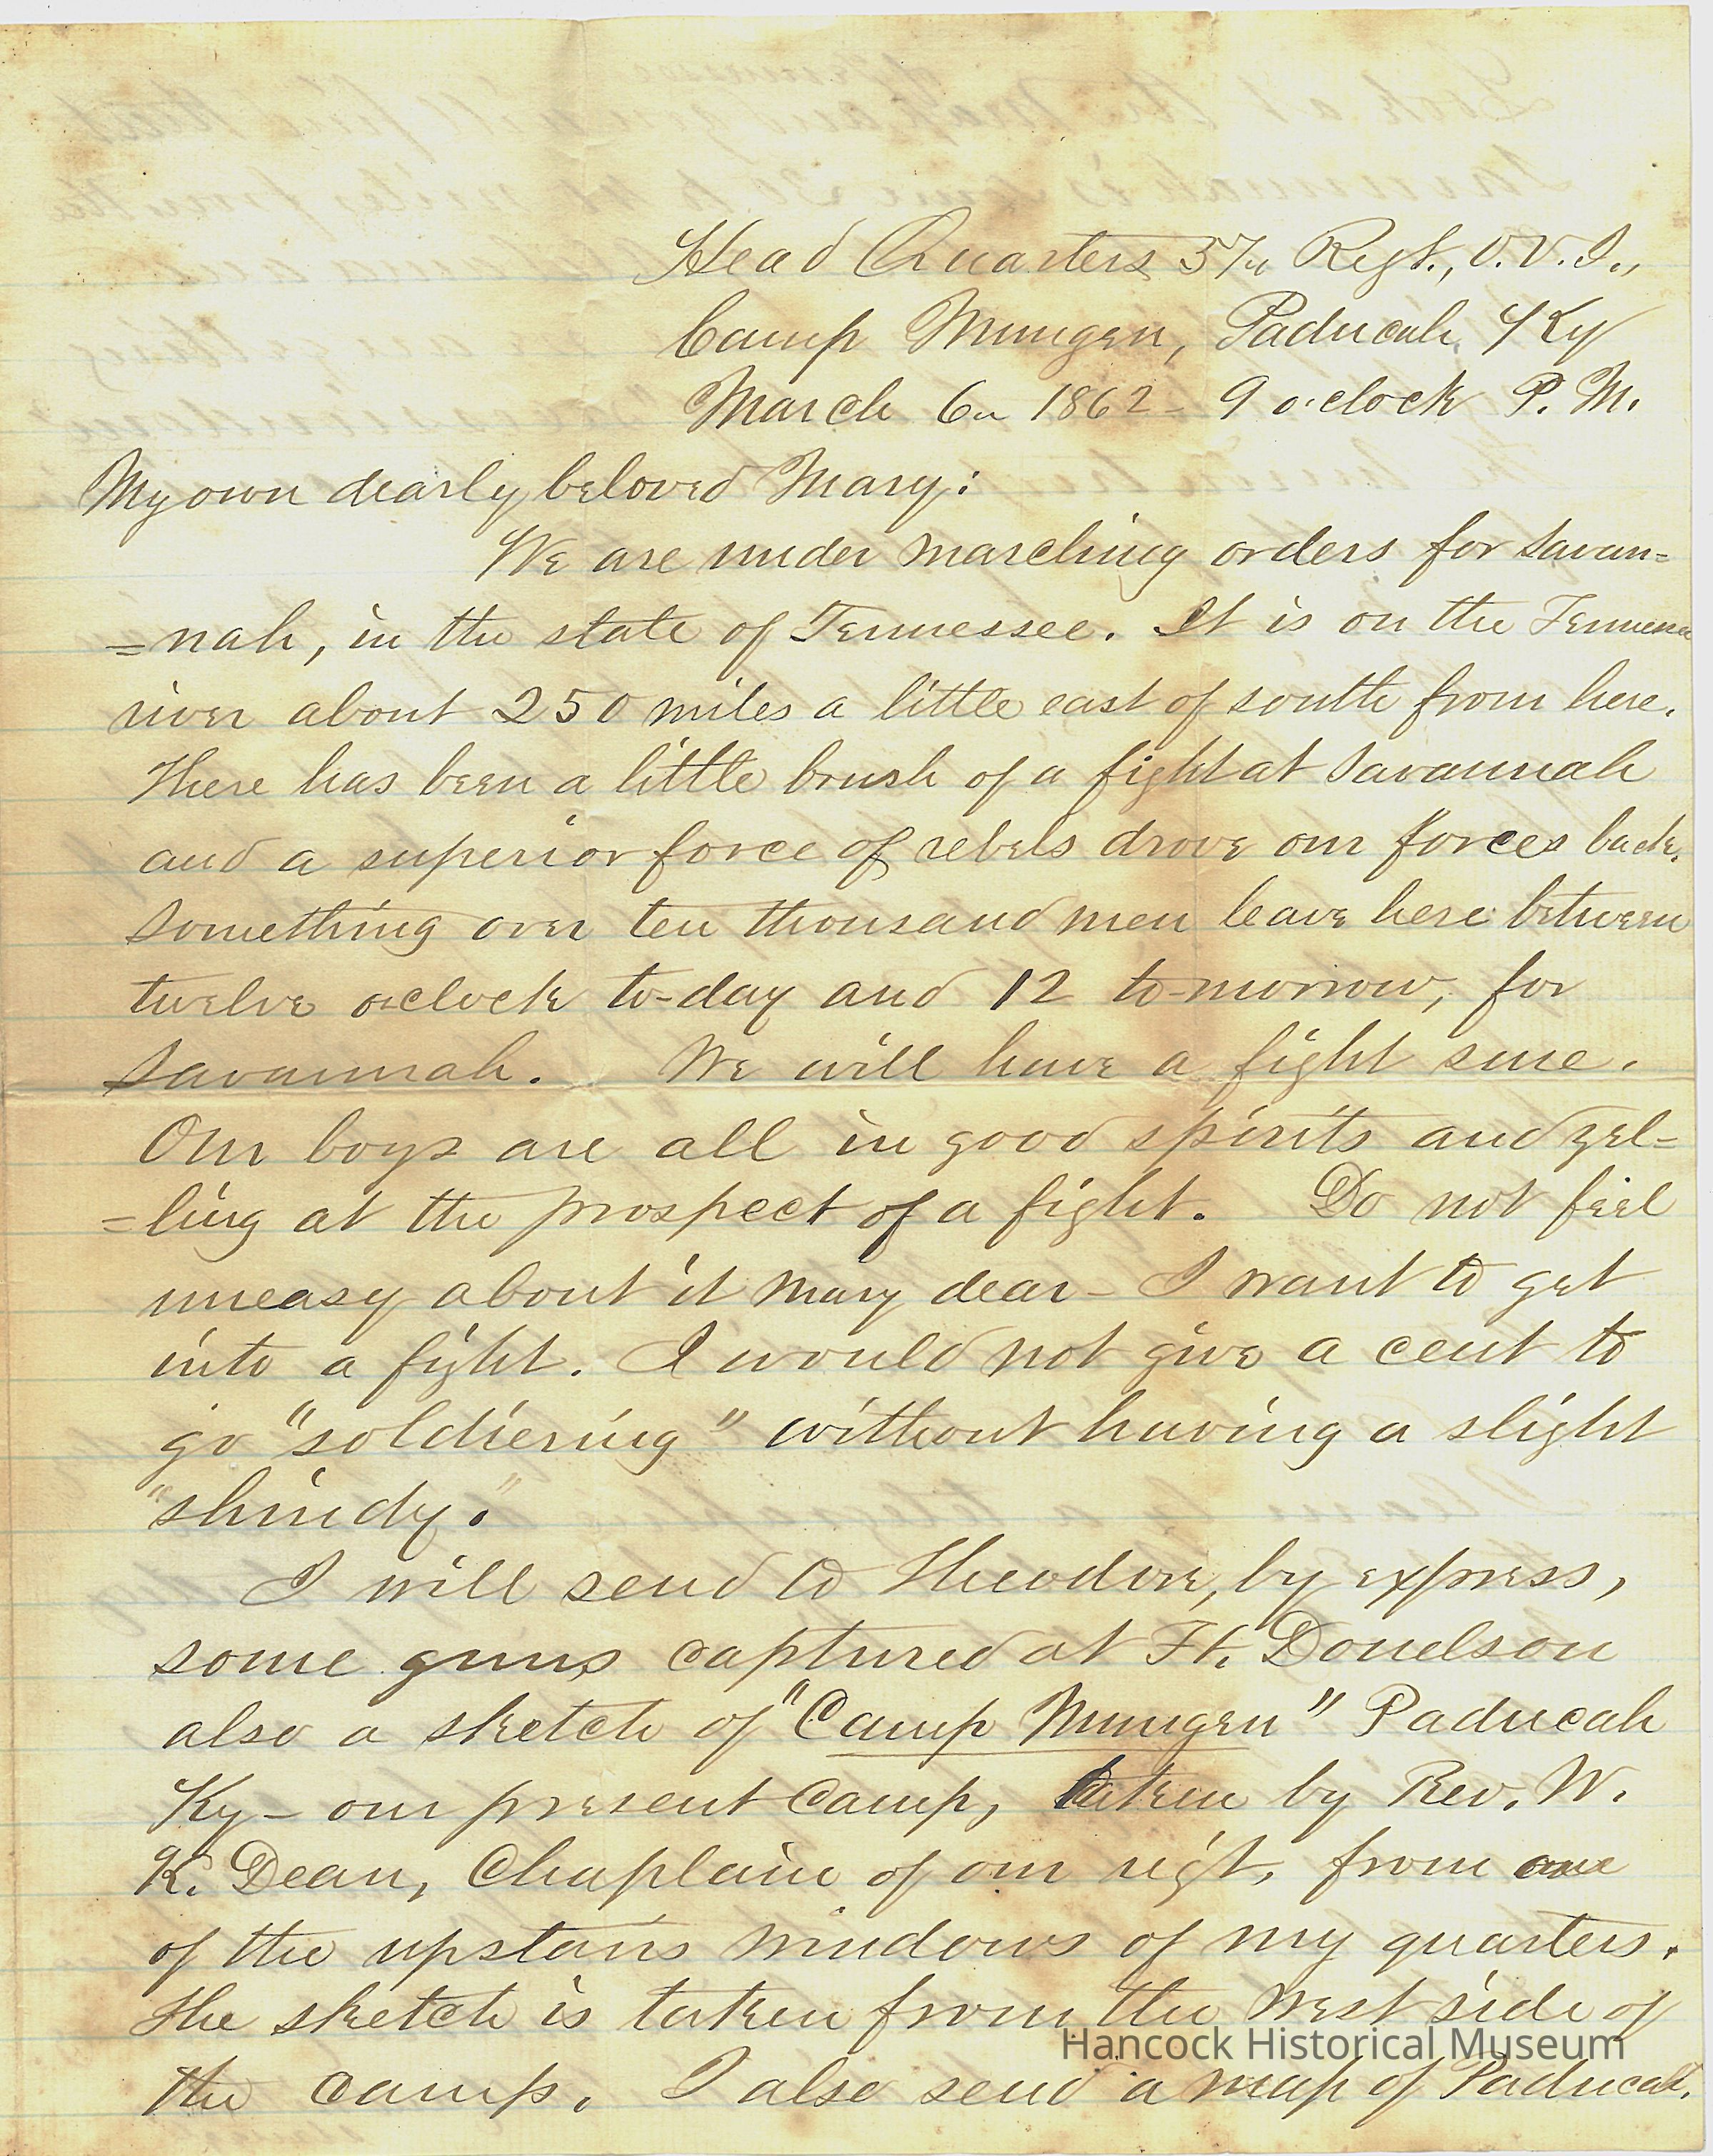 Head Quarters 57th Regt., O.V.I.,
Camp Mungen, Paducah, Ky
March 6th 1862 - 9 o'clock P. M.
My own dearly beloved Mary:
We are under marching orders for Savan=
=nah, in the state of Tennessee. It is on the Tennessee
river about 250 miles a little east of south from here.
There has been a little brush of a fight at Savannah
and a superior force of rebels drove our forces back.
Something over ten thousand men leave here between
twelve o'clock to-day and 12 to-morrow, for
Savannah. We will have a fight sure.
Our boys are all in good spirits and yel=
=ling at the prospect of a fight. Do not feel
uneasy about it Mary dear - I want to get
into a fight. I would not give a cent to
go "soldiering" without having a slight
"shindy."
I will send to Theodore, by express,
some guns captured at Ft. Donelson
also a sketch of "Camp Mungen" Paducah
Ky - our present Camp, taken by Rev. W.
K. Dean, Chaplain of our regt, from one
of the upstairs windows of my quarters.
The sketch is taken from the west side of
the camp. I also send a map of Paducah.
Hancock Historical Museum